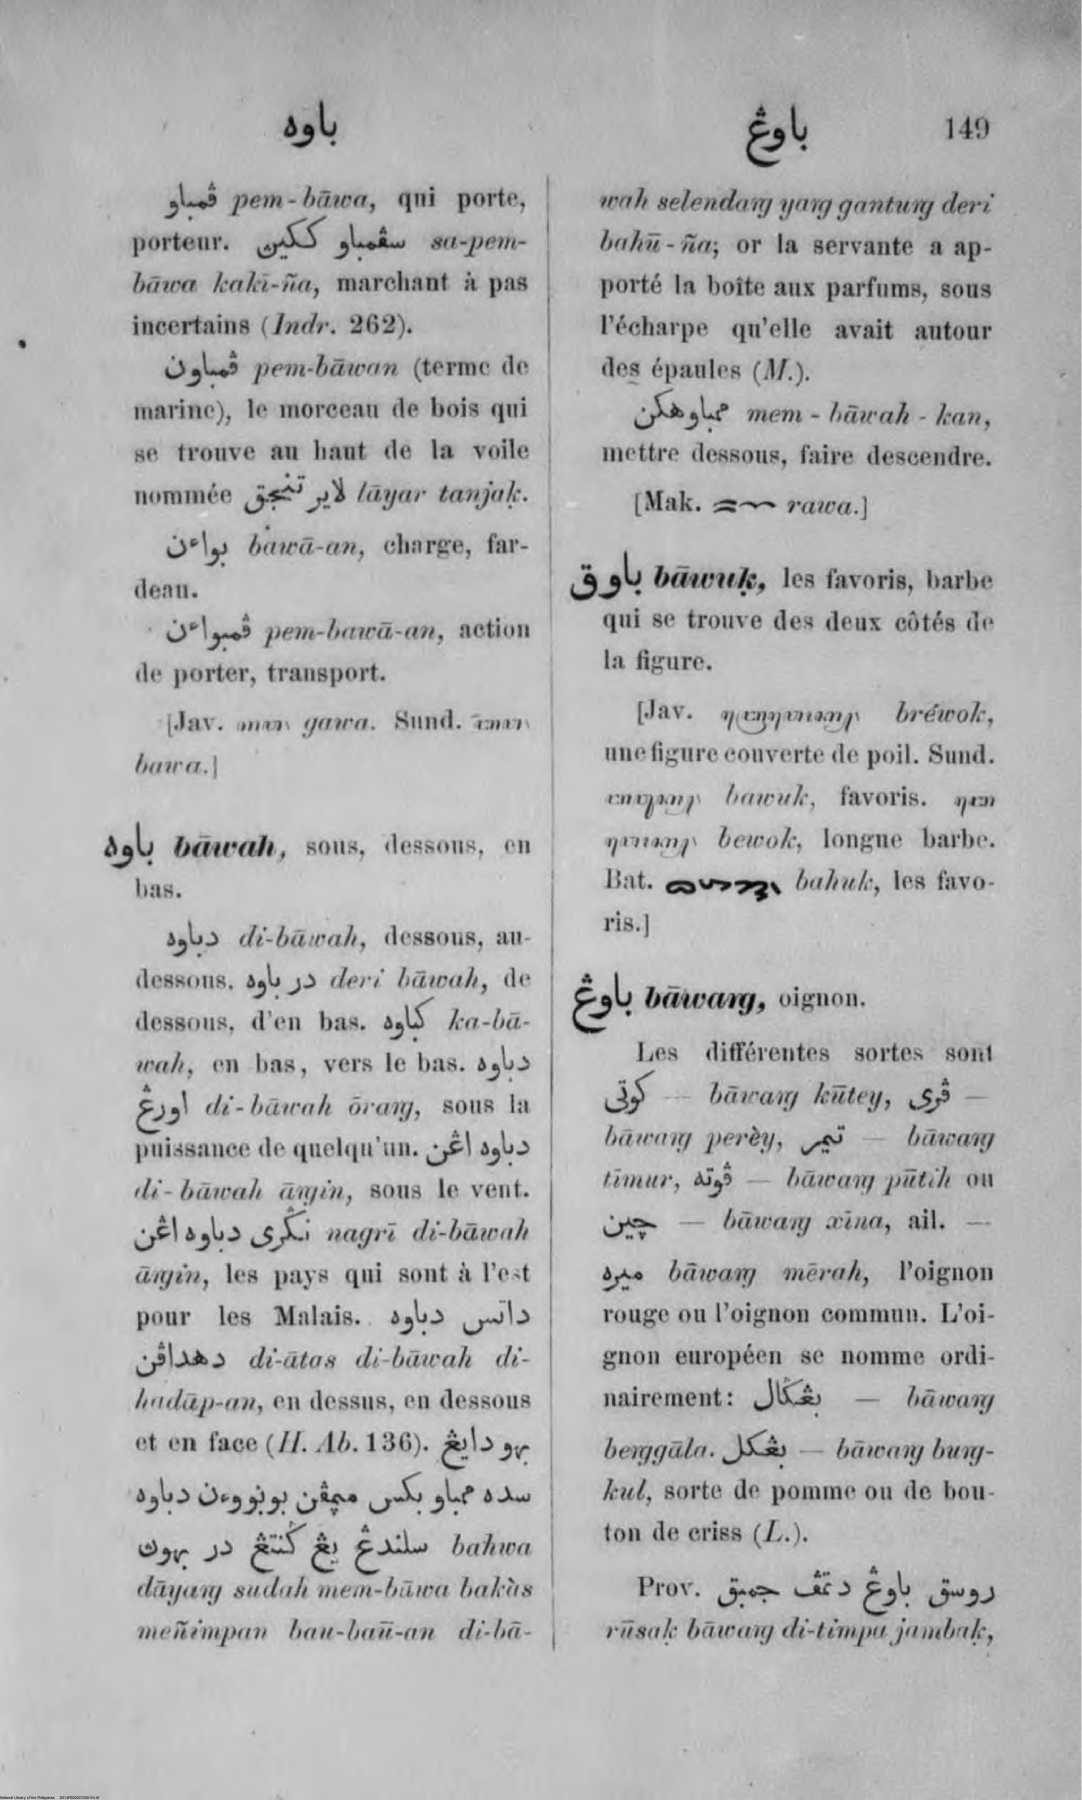 باوه
باوڠ 149
ڤمباو pem-bāwa, qui porte,
porteur. سڤمباو ککين sa-pem-
bāwa kakī-ña, marchant à pas
incertains (Indr. 262).
ڤمباون pem-bāwan (terme de
marine), le morceau de bois qui
se trouve au haut de la voile
nommée لاير تنجق lāyar tanjaḳ.
بواءن bawā-an, charge, far-
deau.
ڤمبواءن pem-bawā-an, action
de porter, transport.
[Jav. gawa. Sund.
bawa.]
باوه bāwah, sous, dessous, en
bas.
دباوه di-bāwah, dessous, au-
dessous. در باوه deri bāwah, de
dessous, d'en bas. کباوه ka-bā-
wah, en bas, vers le bas. دباوه
اورڠ di-bāwah ōrang, sous la
puissance de quelqu'un. دباوه اڠن
di-bāwah āngin, sous le vent.
نݢري دباوه اڠن nagrī di-bāwah
āngin, les pays qui sont à l'est
pour les Malais. داتس دباوه
دهداڤن di-ātas di-bāwah di-
hadāp-an, en dessus, en dessous
et en face (H. Ab. 136). بهو دايڠ
سده ممباو بکس دباوه
سلندڠ يڠ ݢنتڠ در بهوڽ bahwa
dāyang sudah mem-bāwa bakàs
meñimpan bau-baū-an di-bā-
wah selendang yang gantung deri
bahū-ña; or la servante a ap-
porté la boîte aux parfums, sous
l'écharpe qu'elle avait autour
des épaules (M.).
ممباوهکن mem-bāwah-kan,
mettre dessous, faire descendre.
[Mak. rawa.]
باوق bāwuḳ, les favoris, barbe
qui se trouve des deux côtés de
la figure.
[Jav. bréwok,
une figure couverte de poil. Sund.
bawuk, favoris.
bewok, longue barbe.
Bat. bahuk, les favo-
ris.]
باوڠ bāwang, oignon.
Les différentes sortes sont
کوتي — bāwang kūtey, ڤري —
bāwang perèy, تيمر — bāwang
tīmur, ڤوته — bāwang pūtih ou
چين — bāwang xīna, ail. —
ميره bāwang mērah, l'oignon
rouge ou l'oignon commun. L'oi-
gnon européen se nomme ordi-
nairement: بڠݢال — bāwang
benggāla. بڠکل — bāwang bung-
kul, sorte de pomme ou de bou-
ton de criss (L.).
Prov. روسق باوڠ دتمڤ جمبق
rūsaḳ bāwang di-timpa jambaḳ,